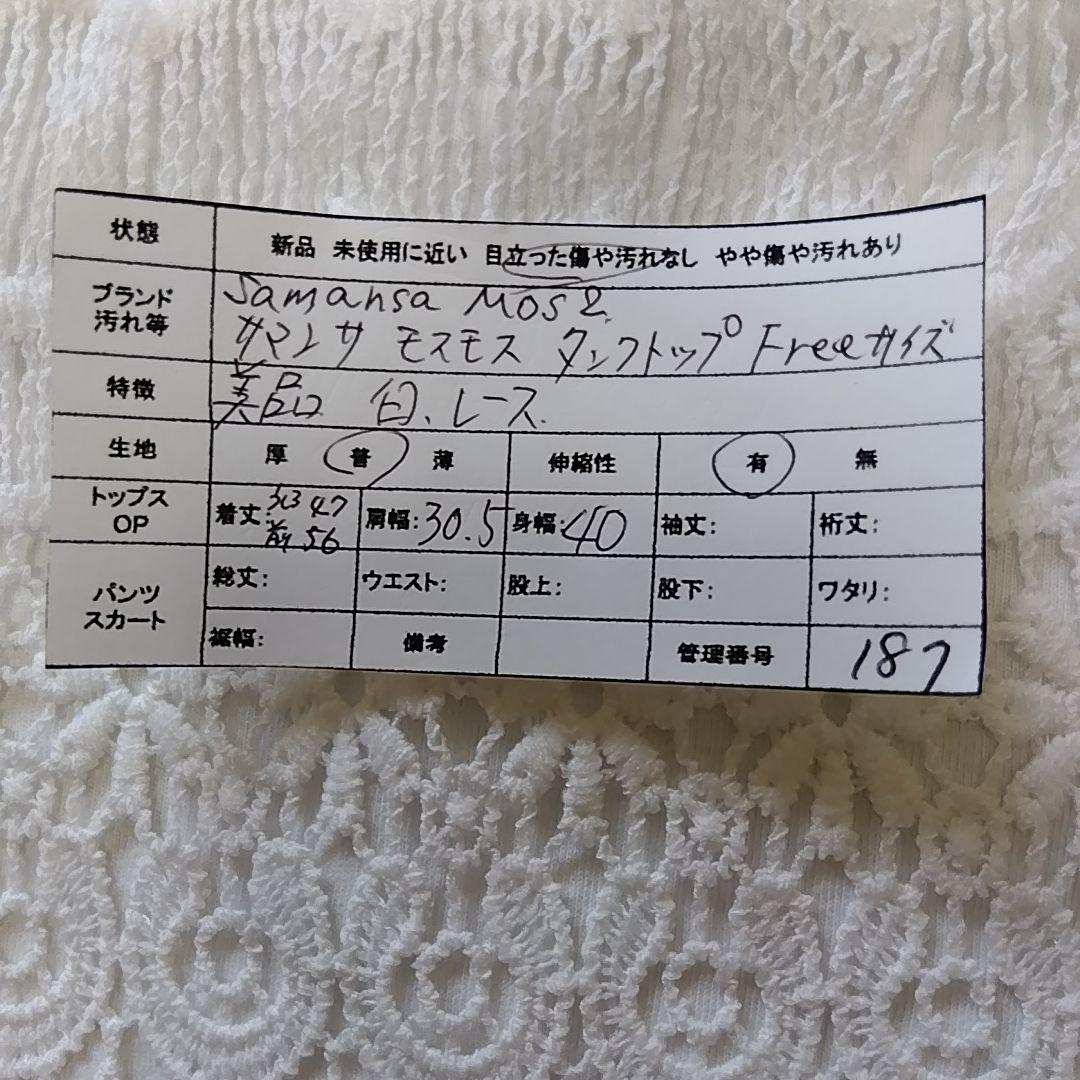 状態 新品 未使用に近い 目立った傷や汚れなし やや傷や汚れあり
ブランド 汚れ等 Samansa Mos2
サマンサ モスモス タンクトップ Freeサイズ
特徴 美品 白、レース
生地 厚 普 薄 伸縮性 有 無
トップス OP 着丈: 47 前 56 肩幅: 30.5 身幅: 40 袖丈: 裄丈:
パンツ スカート 総丈: ウエスト: 股上: 股下: ワタリ:
裾幅: 備考 管理番号 187